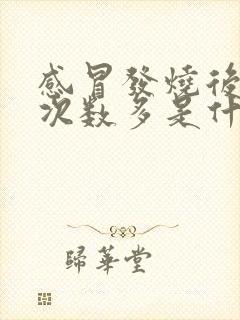 感冒發燒後
次数多是什
歸華堂